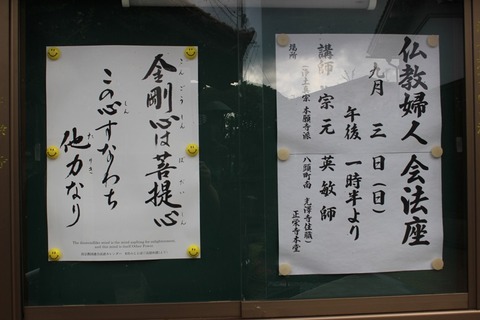 仏教婦人会法座
九月三日(日)
午後一時半より
講師 宗元英敏師
(浄土真宗本願寺派 八頭町南 光澤寺住職)
場所 正栄寺本堂
金剛心は菩提心
こんごうしん ぼだいしん
この心すなわち
しん
他力なり
たりき
The diamondlike mind is the mind aspiring for enlightenment,
and this mind is itself Other Power.